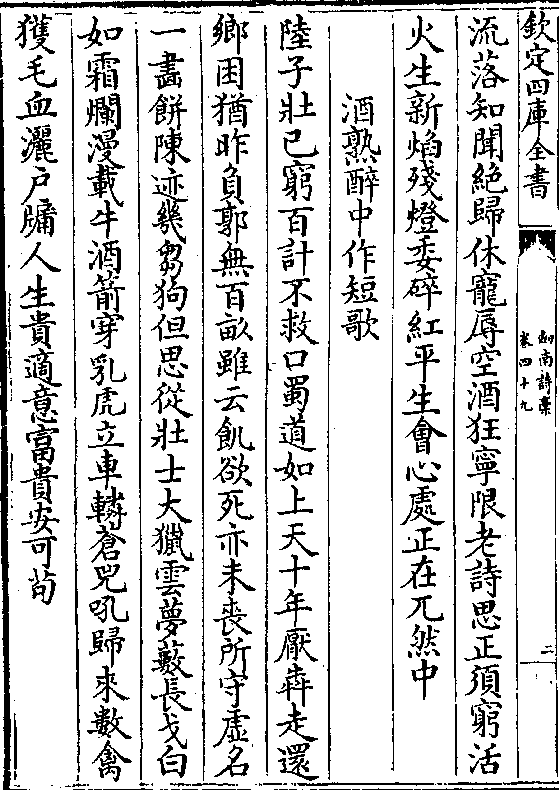 欽定四庫全書
劍南詩藁
卷四十九
二
流落知聞絶歸休寵辱空酒狂寧限老詩思正須窮活
火生新焰殘燈委碎紅平生會心處正在兀然中
酒熟醉中作短歌
陸子壯已窮百計不救口蜀道如上天十年厭犇走還
鄉困猶昨負郭無百畝雖云飢欲死亦未喪所守虛名
一畫餅陳迹幾芻狗但思從壯士大獵雲夢藪長戈白
如霜爛漫載牛酒箭穿乳虎立車轔蒼兕吼歸來數禽
獲毛血灑户牖人生貴適意富貴安可茍